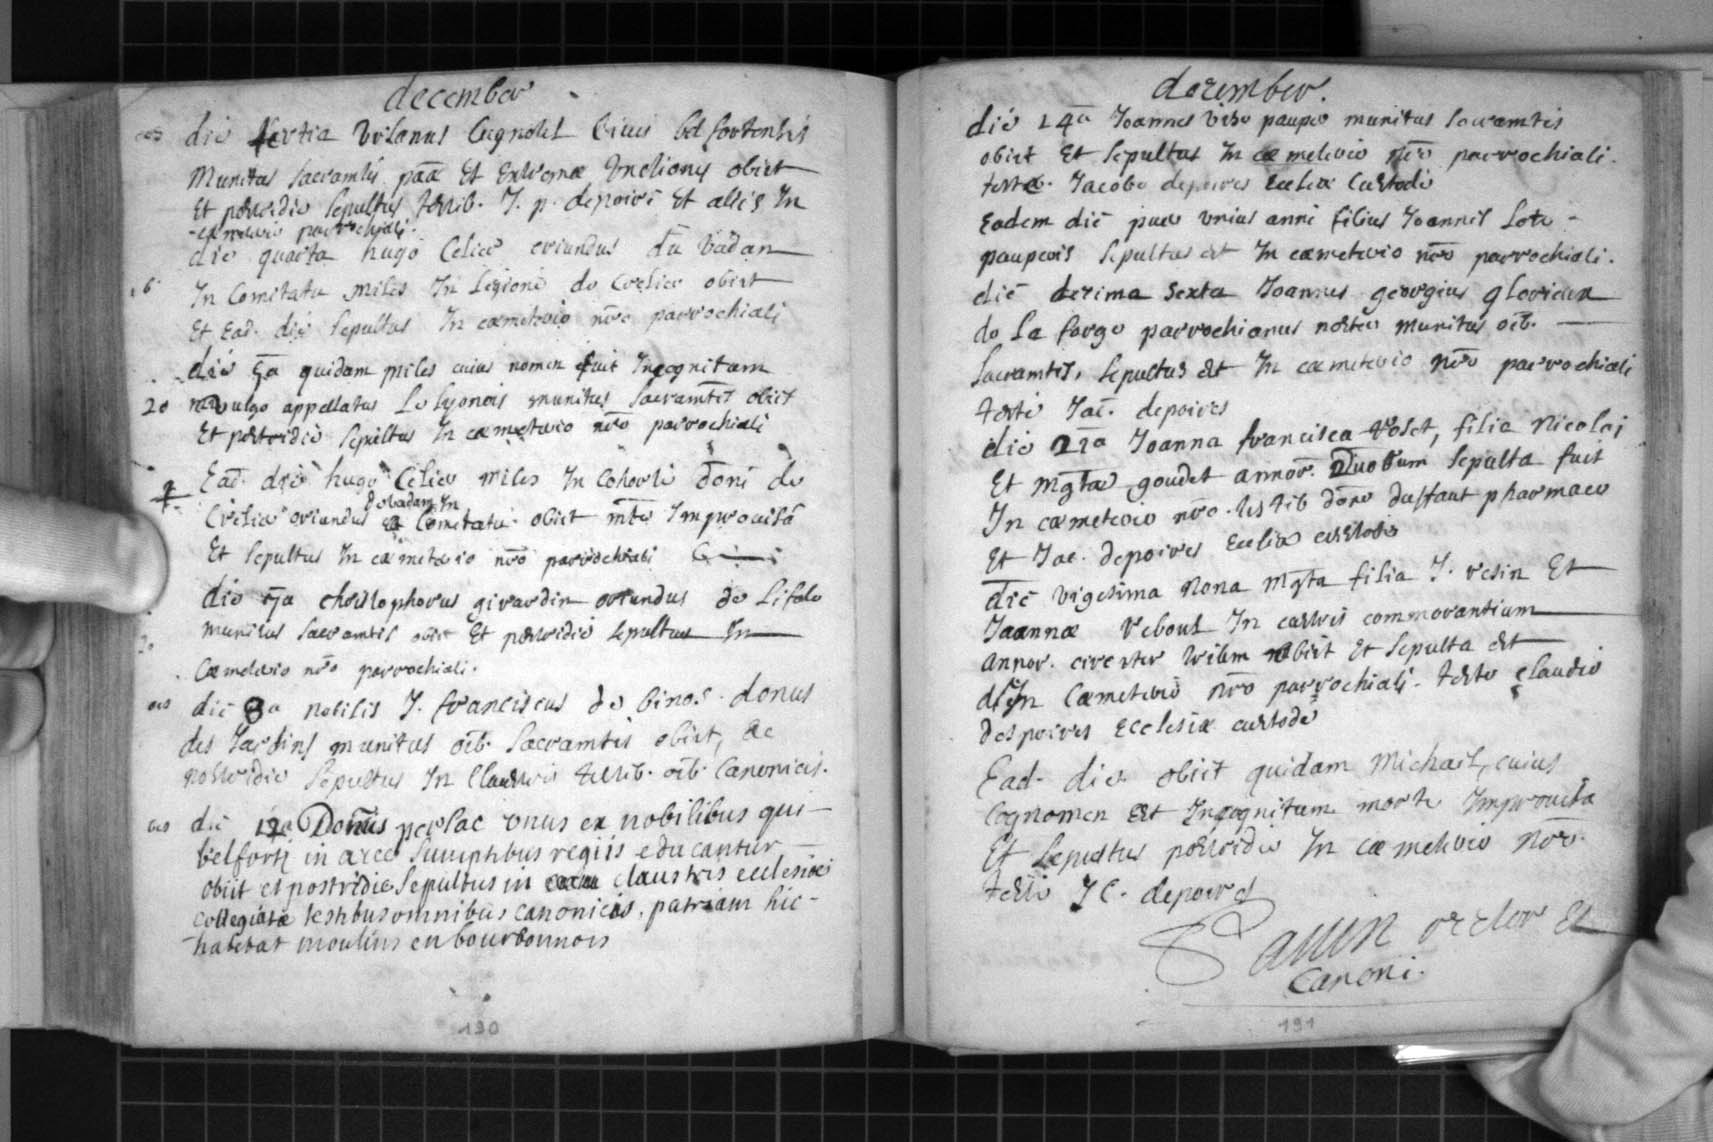 december
die tertia Vrbanus Cugnotet Ciuis belfortensis
Munitus Sacramtis pãa Et Extremæ Vnctionis obiit
Et postridie Sepultus testib. J. p. depoire Et aliis In
cæmeterio parrochiali.
die quarta hugo Celier oriundus du Vadan
6
In Comitatu miles In Legione de Crelier obiit
Et Ead. die Sepultus In cæmeterio nrõ parrochiali
die 5a quidam miles cuius nomen fuit Incognitum
20 vulgo appellatus Le lyonois munitus Sacramtis obiit
Et postridie Sepultus In cæmeterio nrõ parrochiali
Ead. die hugo Celier miles In Cohorte doni de
de vadam In
Crelier oriundus Comitatu. obiit mte Improuisâ
Et Sepultus In cæmeterio nrõ parrochiali
die 7a christophorus girardin oriundus de Lifole
munitus Sacramtis obiit Et postridie Sepultus In
20
Cæmeterio nrõ parrochiali.
die 8a nobilis J. franciscus de binos. donus
des Jardins munitus oib. Sacramtis obiit, ac
postridie Sepultus In Claustris testib. oib. Canonicis.
die 12a Domus perlac vnus ex nobilibus qui
belforti in arce Sumptibus regiis educantur
obiit et postridie Sepultus in claustris ecclesiæ
collegiatæ testibus omnibus canonicis, patriam hic
habebat moulins en bourbonnois
190
december.
die 14a Joannes viso pauper munitus Sacramtis
obiit Et Sepultus In cæmeterio nrõ parrochiali.
teste. Jacobo depoires Eccliæ Custode
Eadem die puer vnius anni filius Joannis Lote
pauperis Sepultus est In cæmeterio nrõ parrochiali.
die decima Sexta Joannes georgius gloriaux
de la forge parrochianus noster munitus oib.
Sacramtis, Sepultus est In cæmeterio nrõ parrochiali
teste Jac. depoires
die 21a Joanna francisca voset, filia Nicolai
Et Mgtæ goudet annor. Duorum Sepulta fuit
In cæmeterio nrõ. testib dono dussaut pharmaco
Et Jac. depoires Eccliæ custode
die vigesima Nona Mgta filia J. vesin Et
Joannæ Rebout In castris commorantium
annor. circiter trium obiit Et Sepulta est
In Cæmeterio nrõ parrochiali. teste Claudio
despoires Ecclesiæ custode
Ead. die obiit quidam Michaël, cuius
Cognomen Est Incognitum morte Improuisa
Et Sepultus postridie In cæmeterio nrõ.
teste J C. depoires
rector Et
Canoni.
191